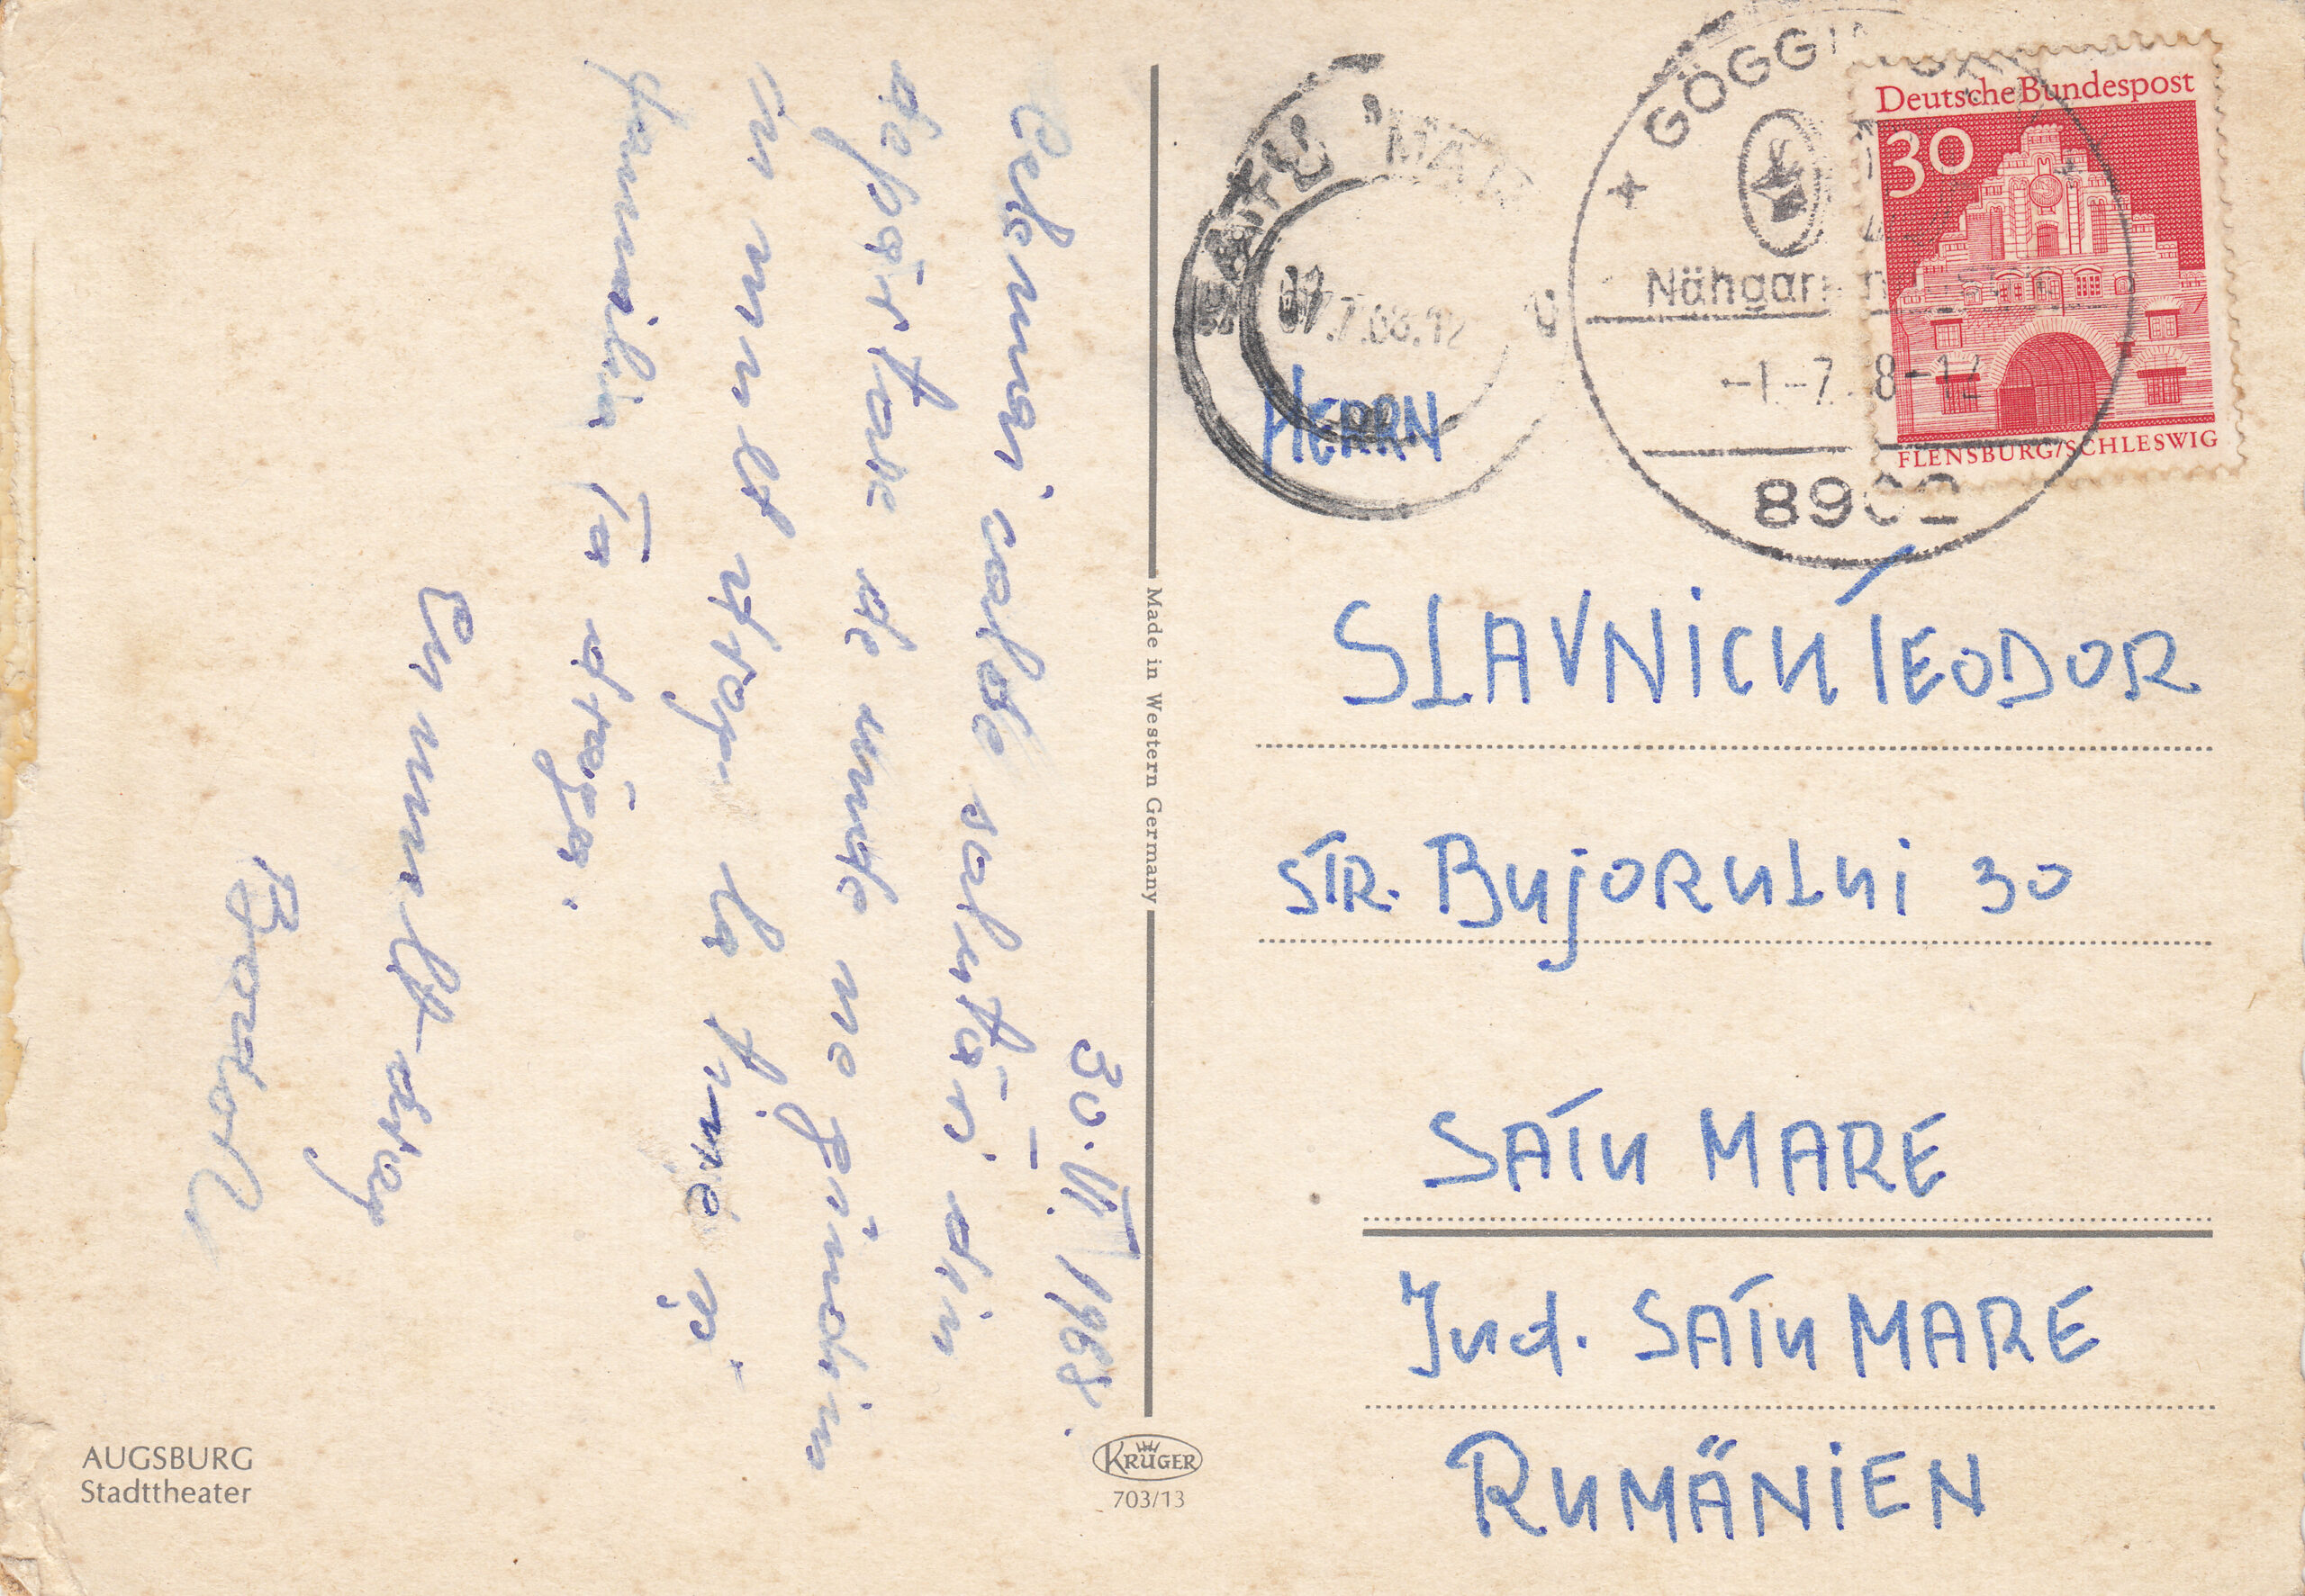 30.VI 1968.
Cele mai calde salutări din
depărtare de unde ne gîndim
cu mult drag la tine și
familia Ta dragă.
Cu mult drag
AUGSBURG
Stadttheater
Made in Western Germany
KRÜGER
703/13
SATU MARE
7.68.12
+ GÖGGIN
Nähgarn
-1.-7. 8-12
8902
Deutsche Bundespost
30
FLENSBURG/SCHLESWIG
HERRN
SLAVNICU TEODOR
STR. BUJORULUI 30
SATU MARE
Jud. SATU MARE
RUMÄNIEN